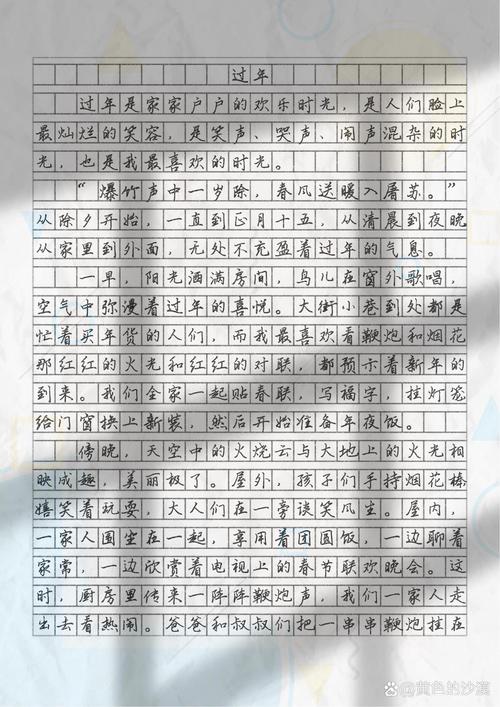 过年
过年是家家户户的欢乐时光，是人们脸上
最灿烂的笑容，是笑声、哭声、闹声混杂的时
光，也是我最喜欢的时光。
“爆竹声中一岁除，春风送暖入屠苏。”
从除夕开始，一直到正月十五，从清晨到夜晚
从家里到外面，无处不充盈着过年的气息。
一早，阳光洒满房间，鸟儿在窗外歌唱，
空气中弥漫着过年的喜悦。大街小巷到处都是
忙着买年货的人们，而我最喜欢看鞭炮和烟花
那红红的火光和红红的对联，都预示着新年的
到来。我们全家一起贴春联，写福字，挂灯笼
给门窗换上新装，然后开始准备年夜饭。
傍晚，天空中的火烧云与大地上的火光相
映成趣，美丽极了。屋外，孩子们手持烟花棒
嬉笑着玩耍，大人们在一旁谈笑风生。屋内，
一家人围坐在一起，享用着团圆饭，一边聊着
家常，一边欣赏着电视上的春节联欢晚会。这
时，厨房里传来一阵阵鞭炮声，我们一家人走
出去看热闹。爸爸和叔叔们把一串串鞭炮挂在
黄色的沙漠